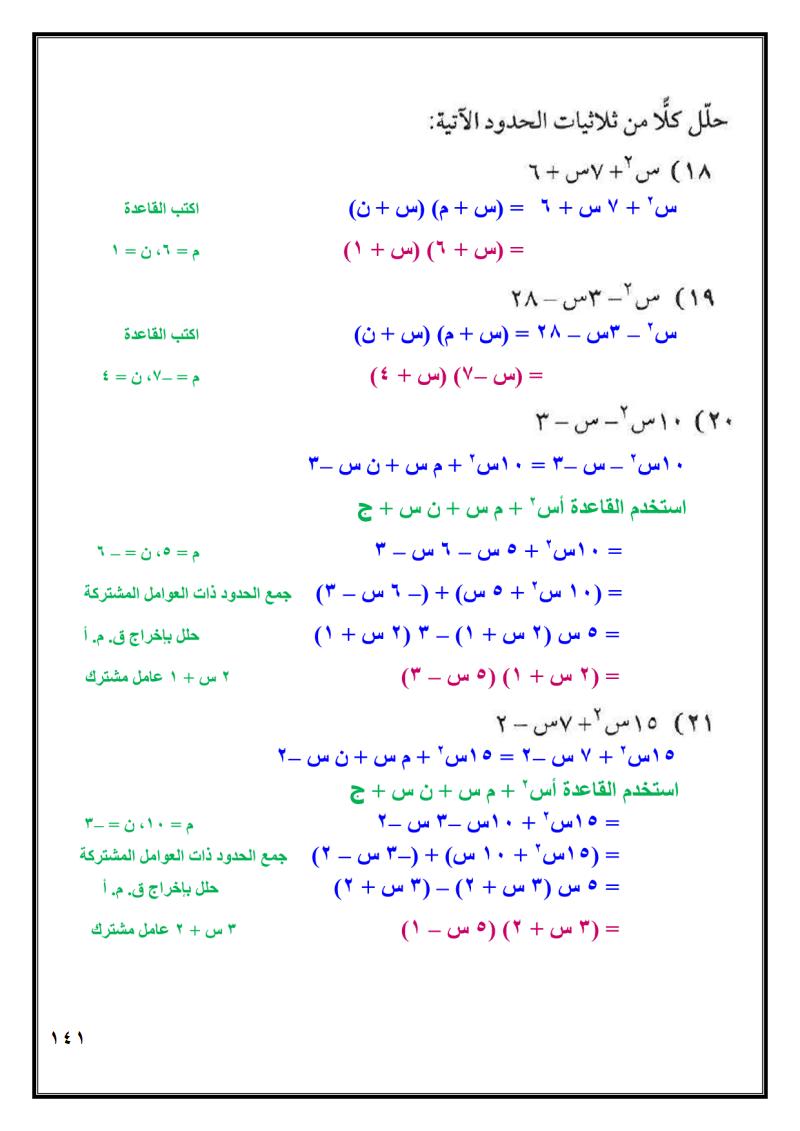 حلّل كلًّا من ثلاثيات الحدود الآتية:
١٨) س٢ + ٧س + ٦
س٢ + ٧ س + ٦ = (س + م) (س + ن) اكتب القاعدة
= (س + ٦) (س + ١) م = ٦، ن = ١
١٩) س٢ – ٣س – ٢٨
س٢ – ٣س – ٢٨ = (س + م) (س + ن) اكتب القاعدة
= (س –٧) (س + ٤) م = –٧، ن = ٤
٢٠) ١٠س٢ – س – ٣
١٠س٢ – س –٣ = ١٠س٢ + م س + ن س –٣
استخدم القاعدة أس٢ + م س + ن س + ج
= ١٠س٢ + ٥ س – ٦ س – ٣ م = ٥، ن = – ٦
= (١٠ س٢ + ٥ س) + (– ٦ س – ٣) جمع الحدود ذات العوامل المشتركة
= ٥ س (٢ س + ١) – ٣ (٢ س + ١) حلل بإخراج ق. م. أ
= (٢ س + ١) (٥ س – ٣) ٢ س + ١ عامل مشترك
٢١) ١٥س٢ + ٧س – ٢
١٥س٢ + ٧ س –٢ = ١٥س٢ + م س + ن س –٢
استخدم القاعدة أس٢ + م س + ن س + ج
= ١٥س٢ + ١٠س –٣ س –٢ م = ١٠، ن = –٣
= (١٥س٢ + ١٠ س) + (–٣ س – ٢) جمع الحدود ذات العوامل المشتركة
= ٥ س (٣ س + ٢) – (٣ س + ٢) حلل بإخراج ق. م. أ
= (٣ س + ٢) (٥ س – ١) ٣ س + ٢ عامل مشترك
١٤١